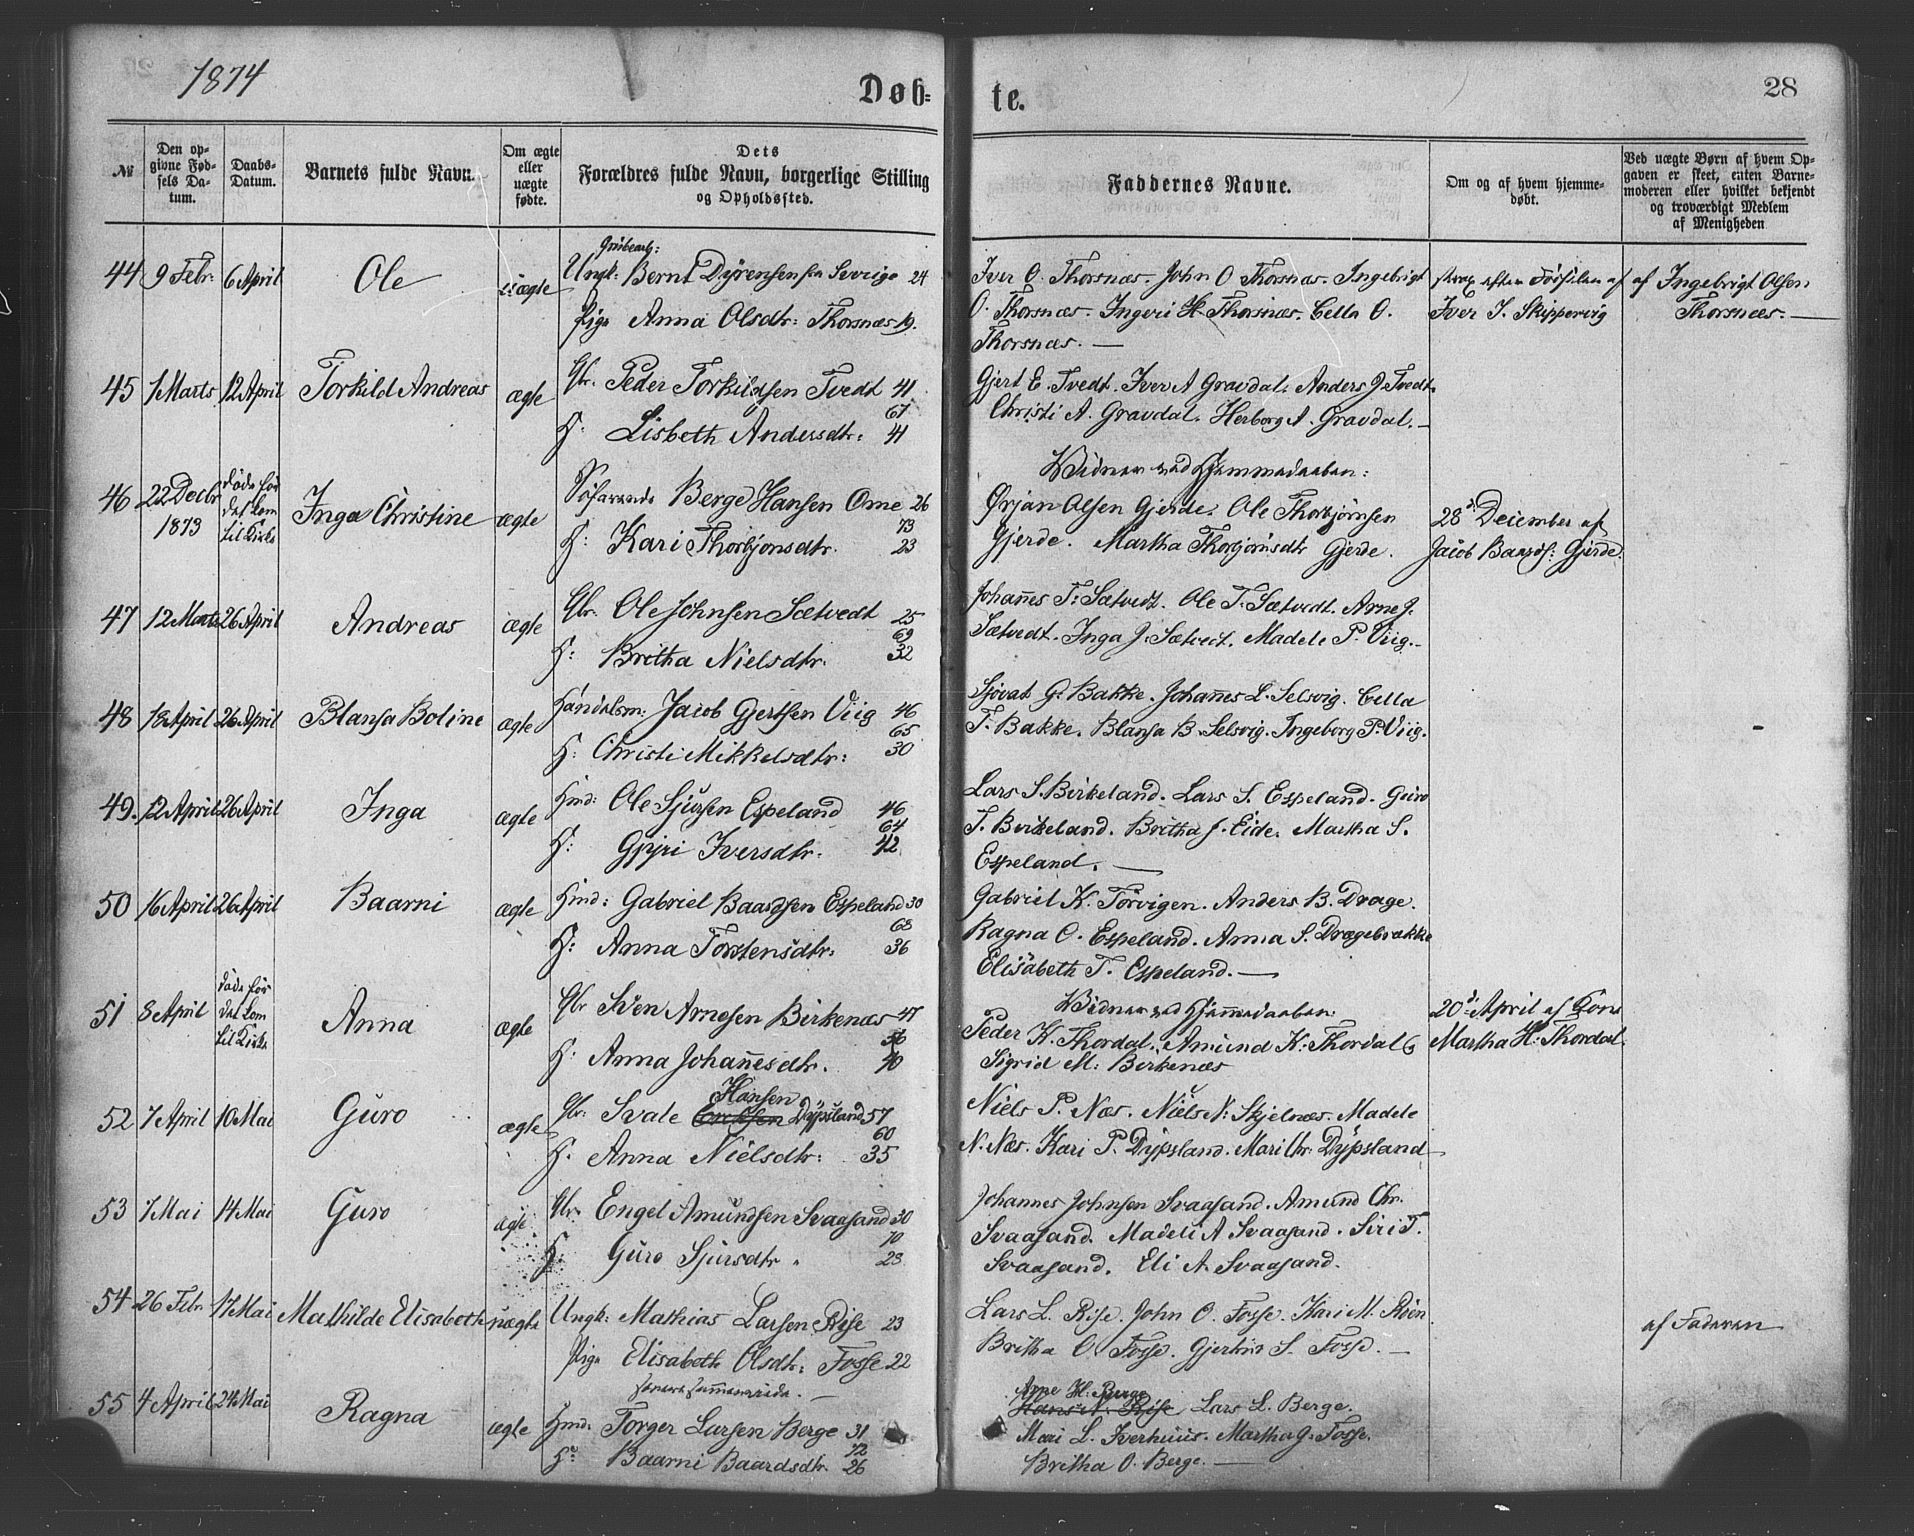 1874
Døb=
te.
28
№
Den op-
givne Fød-
sels Da-
tum.
Daabs-
Datum.
Barnets fulde Navn.
Om ægte
eller
uægte
fødte.
Dets
Forældres fulde Navn, borgerlige Stilling
og Opholdssted.
Faddernes Navne.
Om og af hvem hjemme-
døbt.
Ved uægte Børn af hvem Op-
gaven er skeet, enten Barne-
moderen eller hvilket bekjendt
og troværdigt Medlem
af Menigheden
44 9 Febr: 6 April Ole uægte
Ungk: Bernt Dyrensen fra Sverige 24
Pige Anna Olsdtr: Thorsnæs 19.
Iver O. Thorsnæs. John O Thorsnæs. Ingebrigt
O. Thorsnæs. Ingeri H. Thorsnæs. Cella O.
Thorsnæs. —
strax efter Fødselen af
Iver J. Skippervig
af Ingebrigt Olsen
Thorsnæs. —
45 1 Marts 12 April Torkild Andreas ægte
Gbr. Peder Torkildsen Tvedt 41
67
H: Lisbeth Andersdtr: 41
Gjert E. Tvedt. Iver A Gravdal. Anders J. Tvedt.
Christi A. Gravdal. Herborg A. Gravdal. —
46 22 Decbr 1873
døde før
det kom
til Kirke
Inga Christine ægte
Søfarende Berge Hansen Ome 26
73
H: Kari Thorbjonsdtr. 23
Vidner ved Hjemmedaaben:
Ørjan Olsen Gjerde. Ole Thorbjørnsen
Gjerde. Martha Thorbjørnsdtr Gjerde.
28d December af
Jacob Baards: Gjerde.
47 12 Marts 26 April Andreas ægte
Gbr. Ole Johnsen Sætvedt 25
69
H: Britha Nielsdtr. 32
Johañes T: Sætvedt. Ole T. Sætvedt. Arne J.
Sætvedt. Inga J. Sætvedt. Madele P. Viig. —
48 18 April 26 April Blansa Boline ægte
Handelsm: Jacob Gjertsen Viig 46
65
H: Christi Mikkelsdtr: 30
Sjovat G. Bakke. Johañes L. Selsvig. Cella
T. Bakke. Blansa B. Selsvig. Ingeborg P. Viig.
49. 12 April 26 April Inga ægte
Hmd: Ole Sjursen Espeland 46
64
H: Gjyri Iversdtr. 42
Lars S. Birkeland. Lars S. Espeland. Guro
T. Birkeland. Britha J. Eide. Martha S.
Espeland. —
50 16 April 26 April Baarni ægte
Hmd: Gabriel Baardsen Espeland 30
68
H: Anna Torstensdtr. 36
Gabriel K. Tørvigen. Anders B. Drage.
Ragna O. Espeland. Anna S. Dragebrække
Elisabeth T. Espeland. —
51 8 April
døde før
det kom
til Kirke
Anna ægte
Gbr Sven Arnesen Birkenæs 47
56
H: Anna Johañesdtr. 40
Vidner ved Hjemmedaaben:
Peder K. Thordal. Amund K. Thordal &
Sigrid M. Birkenæs
20d April af Kone
Martha H. Thordal.
52 7 April 10 Mai Guro ægte
Hansen
Gbr: Svale Eriksen Dypsland 57
60
H. Anna Nielsdtr: 35
Niels P. Næs. Niels N: Skjelnæs. Madele
N. Næs. Kari P. Dypsland. Mari Chr: Dypsland
53 7 Mai 14 Mai Guro ægte
Gbr. Engel Amundsen Svaasand 30
70
H: Guro Sjursdtr. 23
Johannes Johnsen Svaasand. Amund Chr.
Svaasand. Madeli A Svaasand. Siri T.
Svaasand. Eli A. Svaasand.
54 26 Febr. 17 Mai Mathilde Elisabeth uægte
Ungk: Mathias Larsen Rise 23
Pige Elisabeth Olsdtr: Fosse 22
Lars L. Rise. John O. Fosse. Kari M. Røen
Britha O Fosse. Gjertru S. Fosse. —
af Faderen
55 4 April 24 Mai Ragna ægte
Hmd: Torger Larsen Berge 31
72
H: Baarni Baardsdtr. 26
Arne H. Berge
Hans N. Rise Lars L. Berge.
Mari L. Iverhuus. Martha J. Fosse.
Britha O. Berge. —